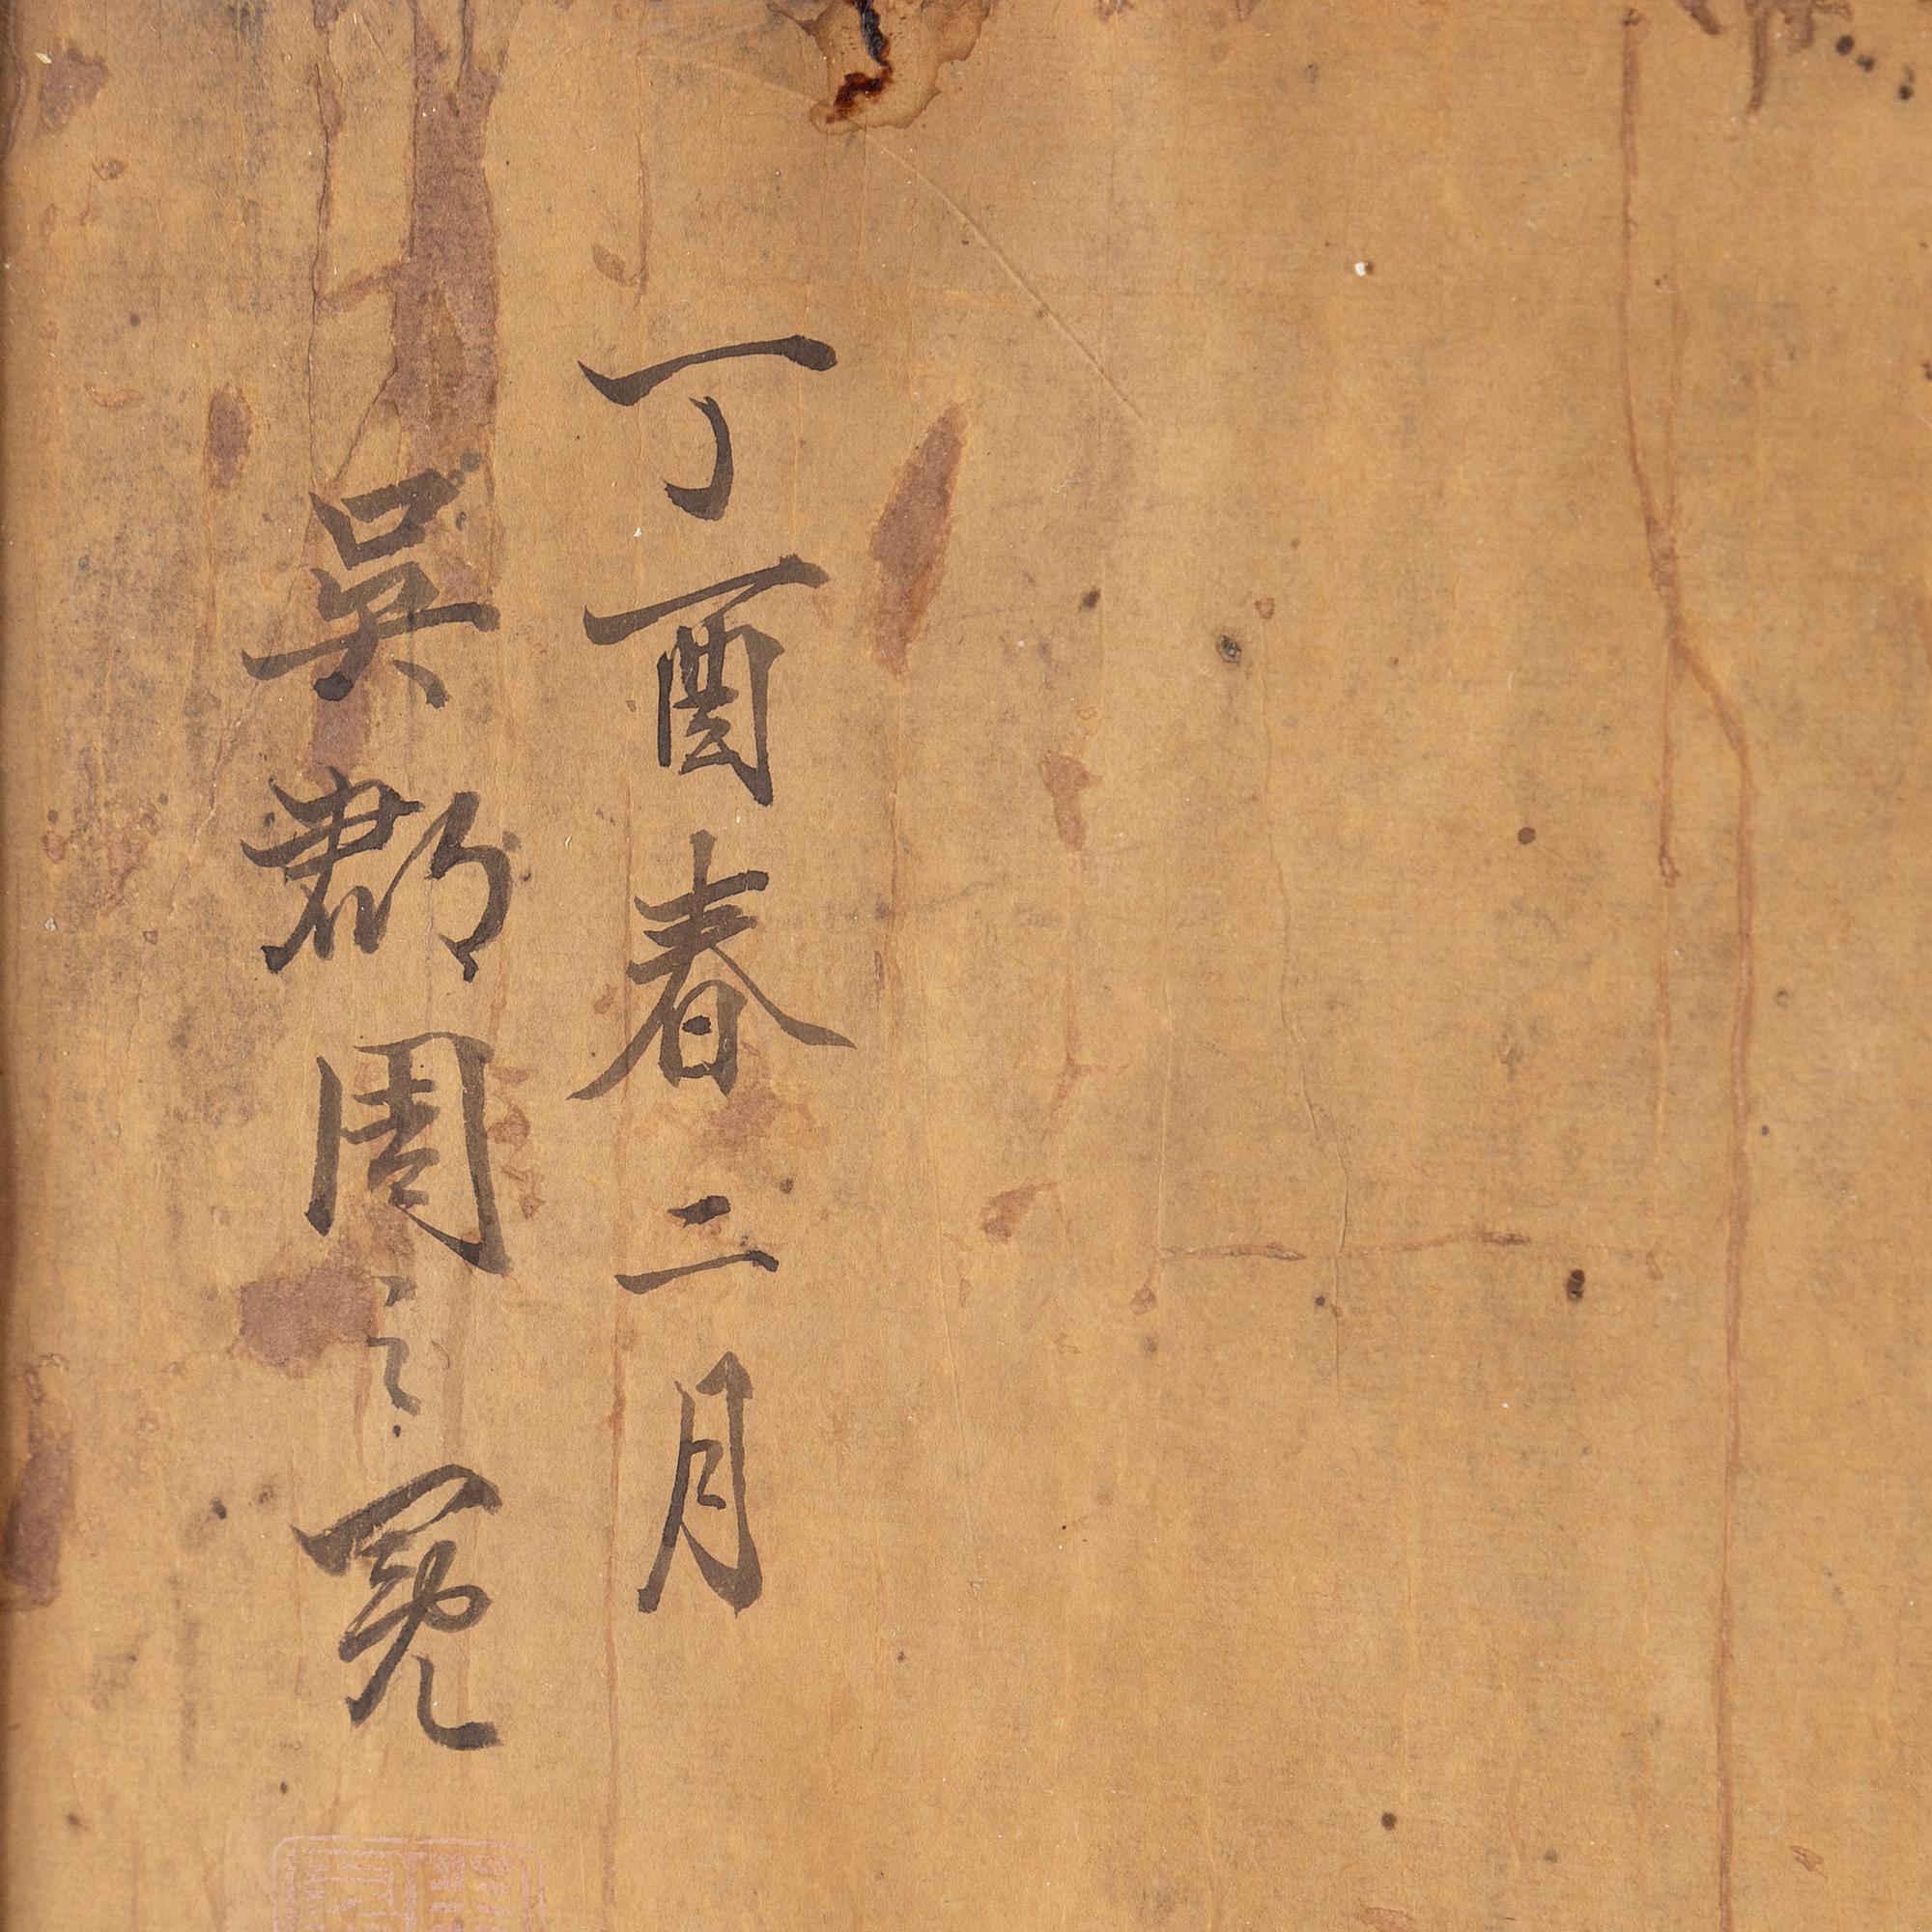 丁酉春二月
吳郡周之冕